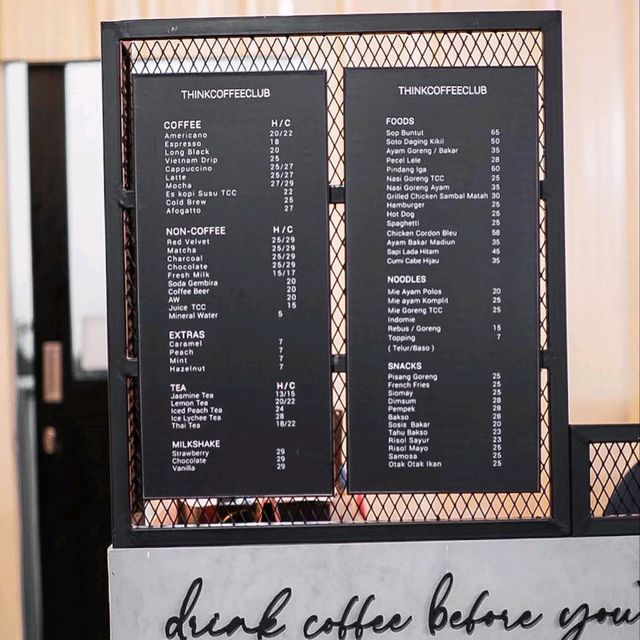 THINKCOFFEECLUB
COFFEE H/C
Americano 20/22
Espresso 18
Long Black 20
Vietnam Drip 25
Cappuccino 25/27
Latte 25/27
Mocha 27/29
Es kopi Susu TCC 22
Cold Brew 25
Afogatto 27
NON-COFFEE H/C
Red Velvet 25/29
Matcha 25/29
Charcoal 25/29
Chocolate 25/29
Fresh Milk 15/17
Soda Gembira 20
Coffee Beer 20
AW 20
Juice TCC 15
Mineral Water 5
EXTRAS
Caramel 7
Peach 7
Mint 7
Hazelnut 7
TEA H/C
Jasmine Tea 13/15
Lemon Tea 20/22
Iced Peach Tea 24
Ice Lychee Tea 28
Thai Tea 18/22
MILKSHAKE
Strawberry 29
Chocolate 29
Vanilla 29
THINKCOFFEECLUB
FOODS
Sop Buntut 65
Soto Daging Kikil 50
Ayam Goreng / Bakar 35
Pecel Lele 28
Pindang Iga 60
Nasi Goreng TCC 25
Nasi Goreng Ayam 35
Grilled Chicken Sambal Matah 30
Hamburger 25
Hot Dog 25
Spaghetti 25
Chicken Cordon Bleu 58
Ayam Bakar Madiun 35
Sapi Lada Hitam 45
Cumi Cabe Hijau 35
NOODLES
Mie Ayam Polos 20
Mie ayam Komplit 25
Mie Goreng TCC 25
Indomie
Rebus / Goreng 15
Topping 7
( Telur/Baso )
SNACKS
Pisang Goreng 25
French Fries 25
Siomay 25
Dimsum 28
Pempek 28
Bakso 28
Sosis Bakar 20
Tahu Bakso 23
Risol Sayur 23
Risol Mayo 25
Samosa 25
Otak Otak Ikan 25
drink coffee before you